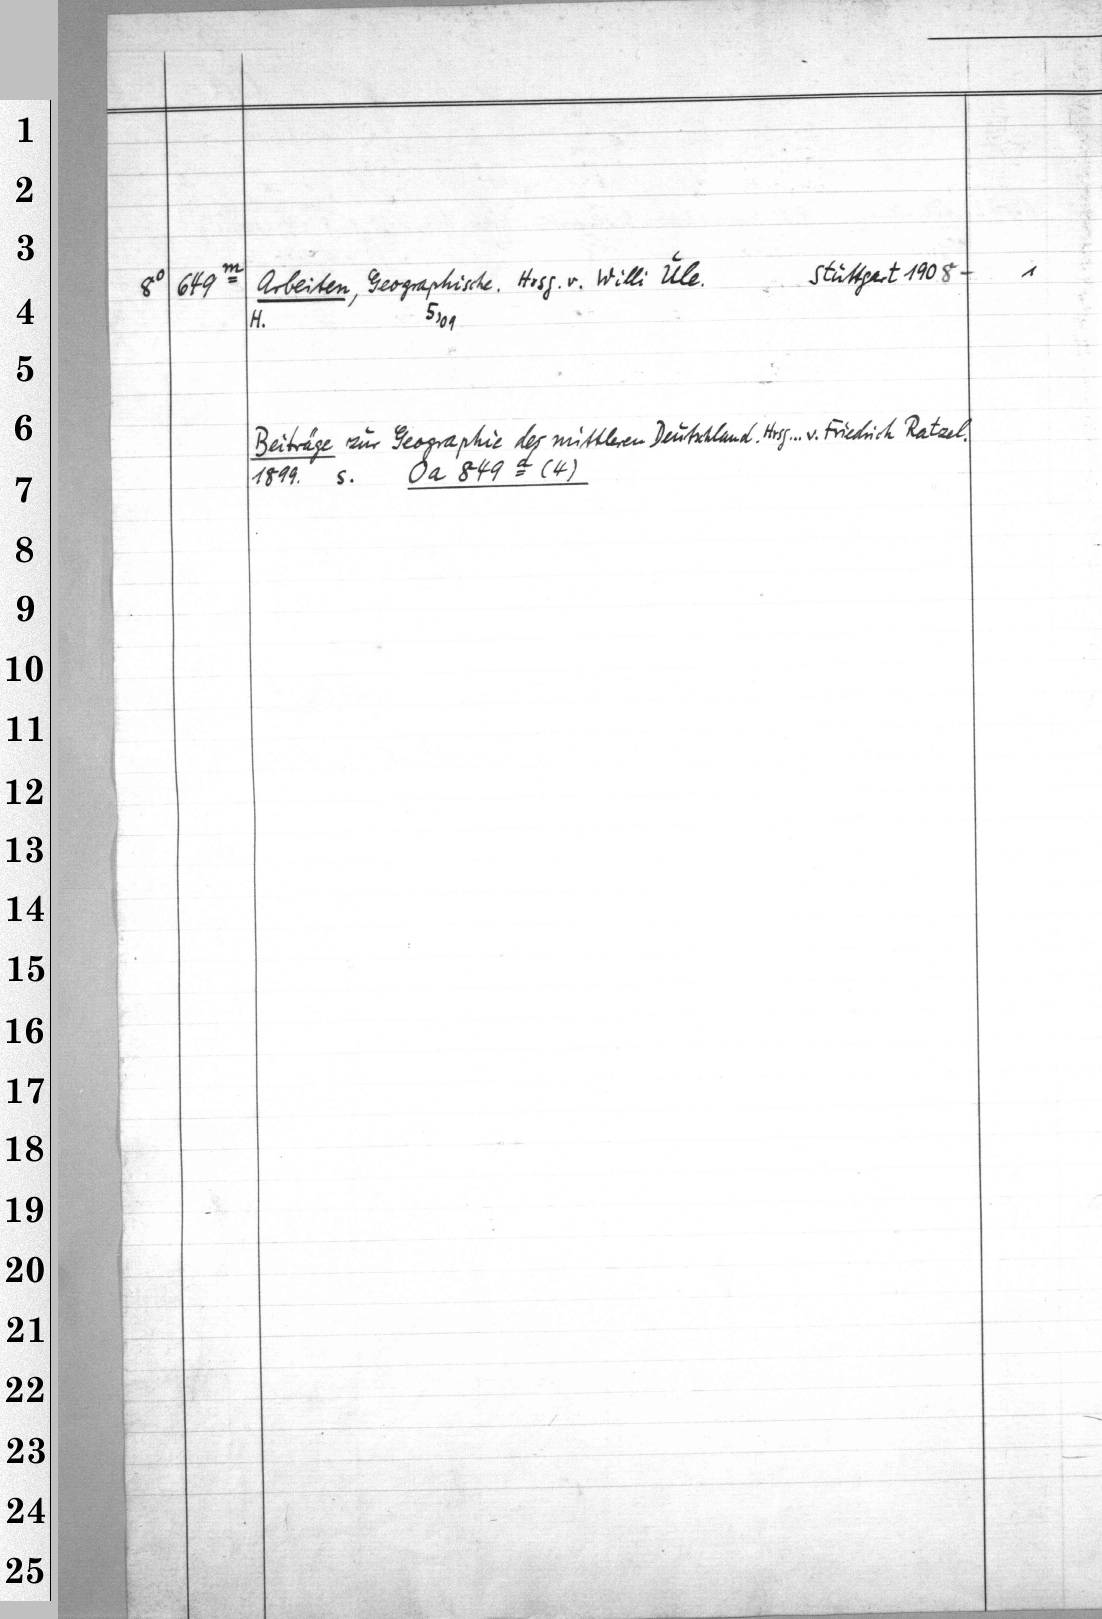 1
2
3
8° 649 m Arbeiten, Geographische. Hrsg. v. Willi Ule. Stuttgart 1908- 1
4
H. 5,09
5
6
Beiträge zur Geographie des mittleren Deutschland. Hrsg... v. Friedrich Ratzel.
7
1899. s. Oa 849 d (4)
8
9
10
11
12
13
14
15
16
17
18
19
20
21
22
23
24
25